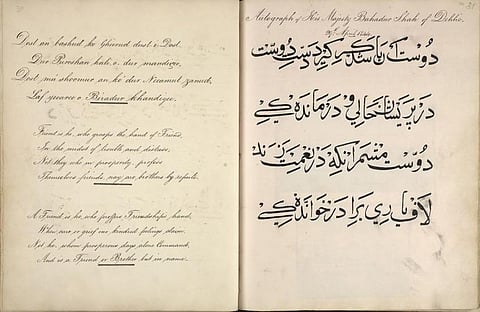 Dost an bashud ke Ghierud dust e Dost
Dur Pareshan hali, o, dur mandigee,
Dost, ma shoomur an ke dur Niamut zunud,
Laf yaaree o Biradur khandigee.
Friend is he, who grasps the hand of Friend,
In the midst of trouble and distress,
Not they who in prosperity, profess
Themselves friends, nay are, brothers by
A Friend is he who proffers Friendship's hand,
When care or grief one hundred failings claim,
Not he, whom prosperous days alone Command,
And is a Friend or Brother but in name.
31
Autograph of His Majesty Bahadur Shah of Dehlie.
29th April
دُوست آن باشد کہ گیرد دستِ دوست
در پریشان حالی و درمانده کي
دُوست مشمر آنکه در نعمت زند
لاف یاري برادر خوانده کي